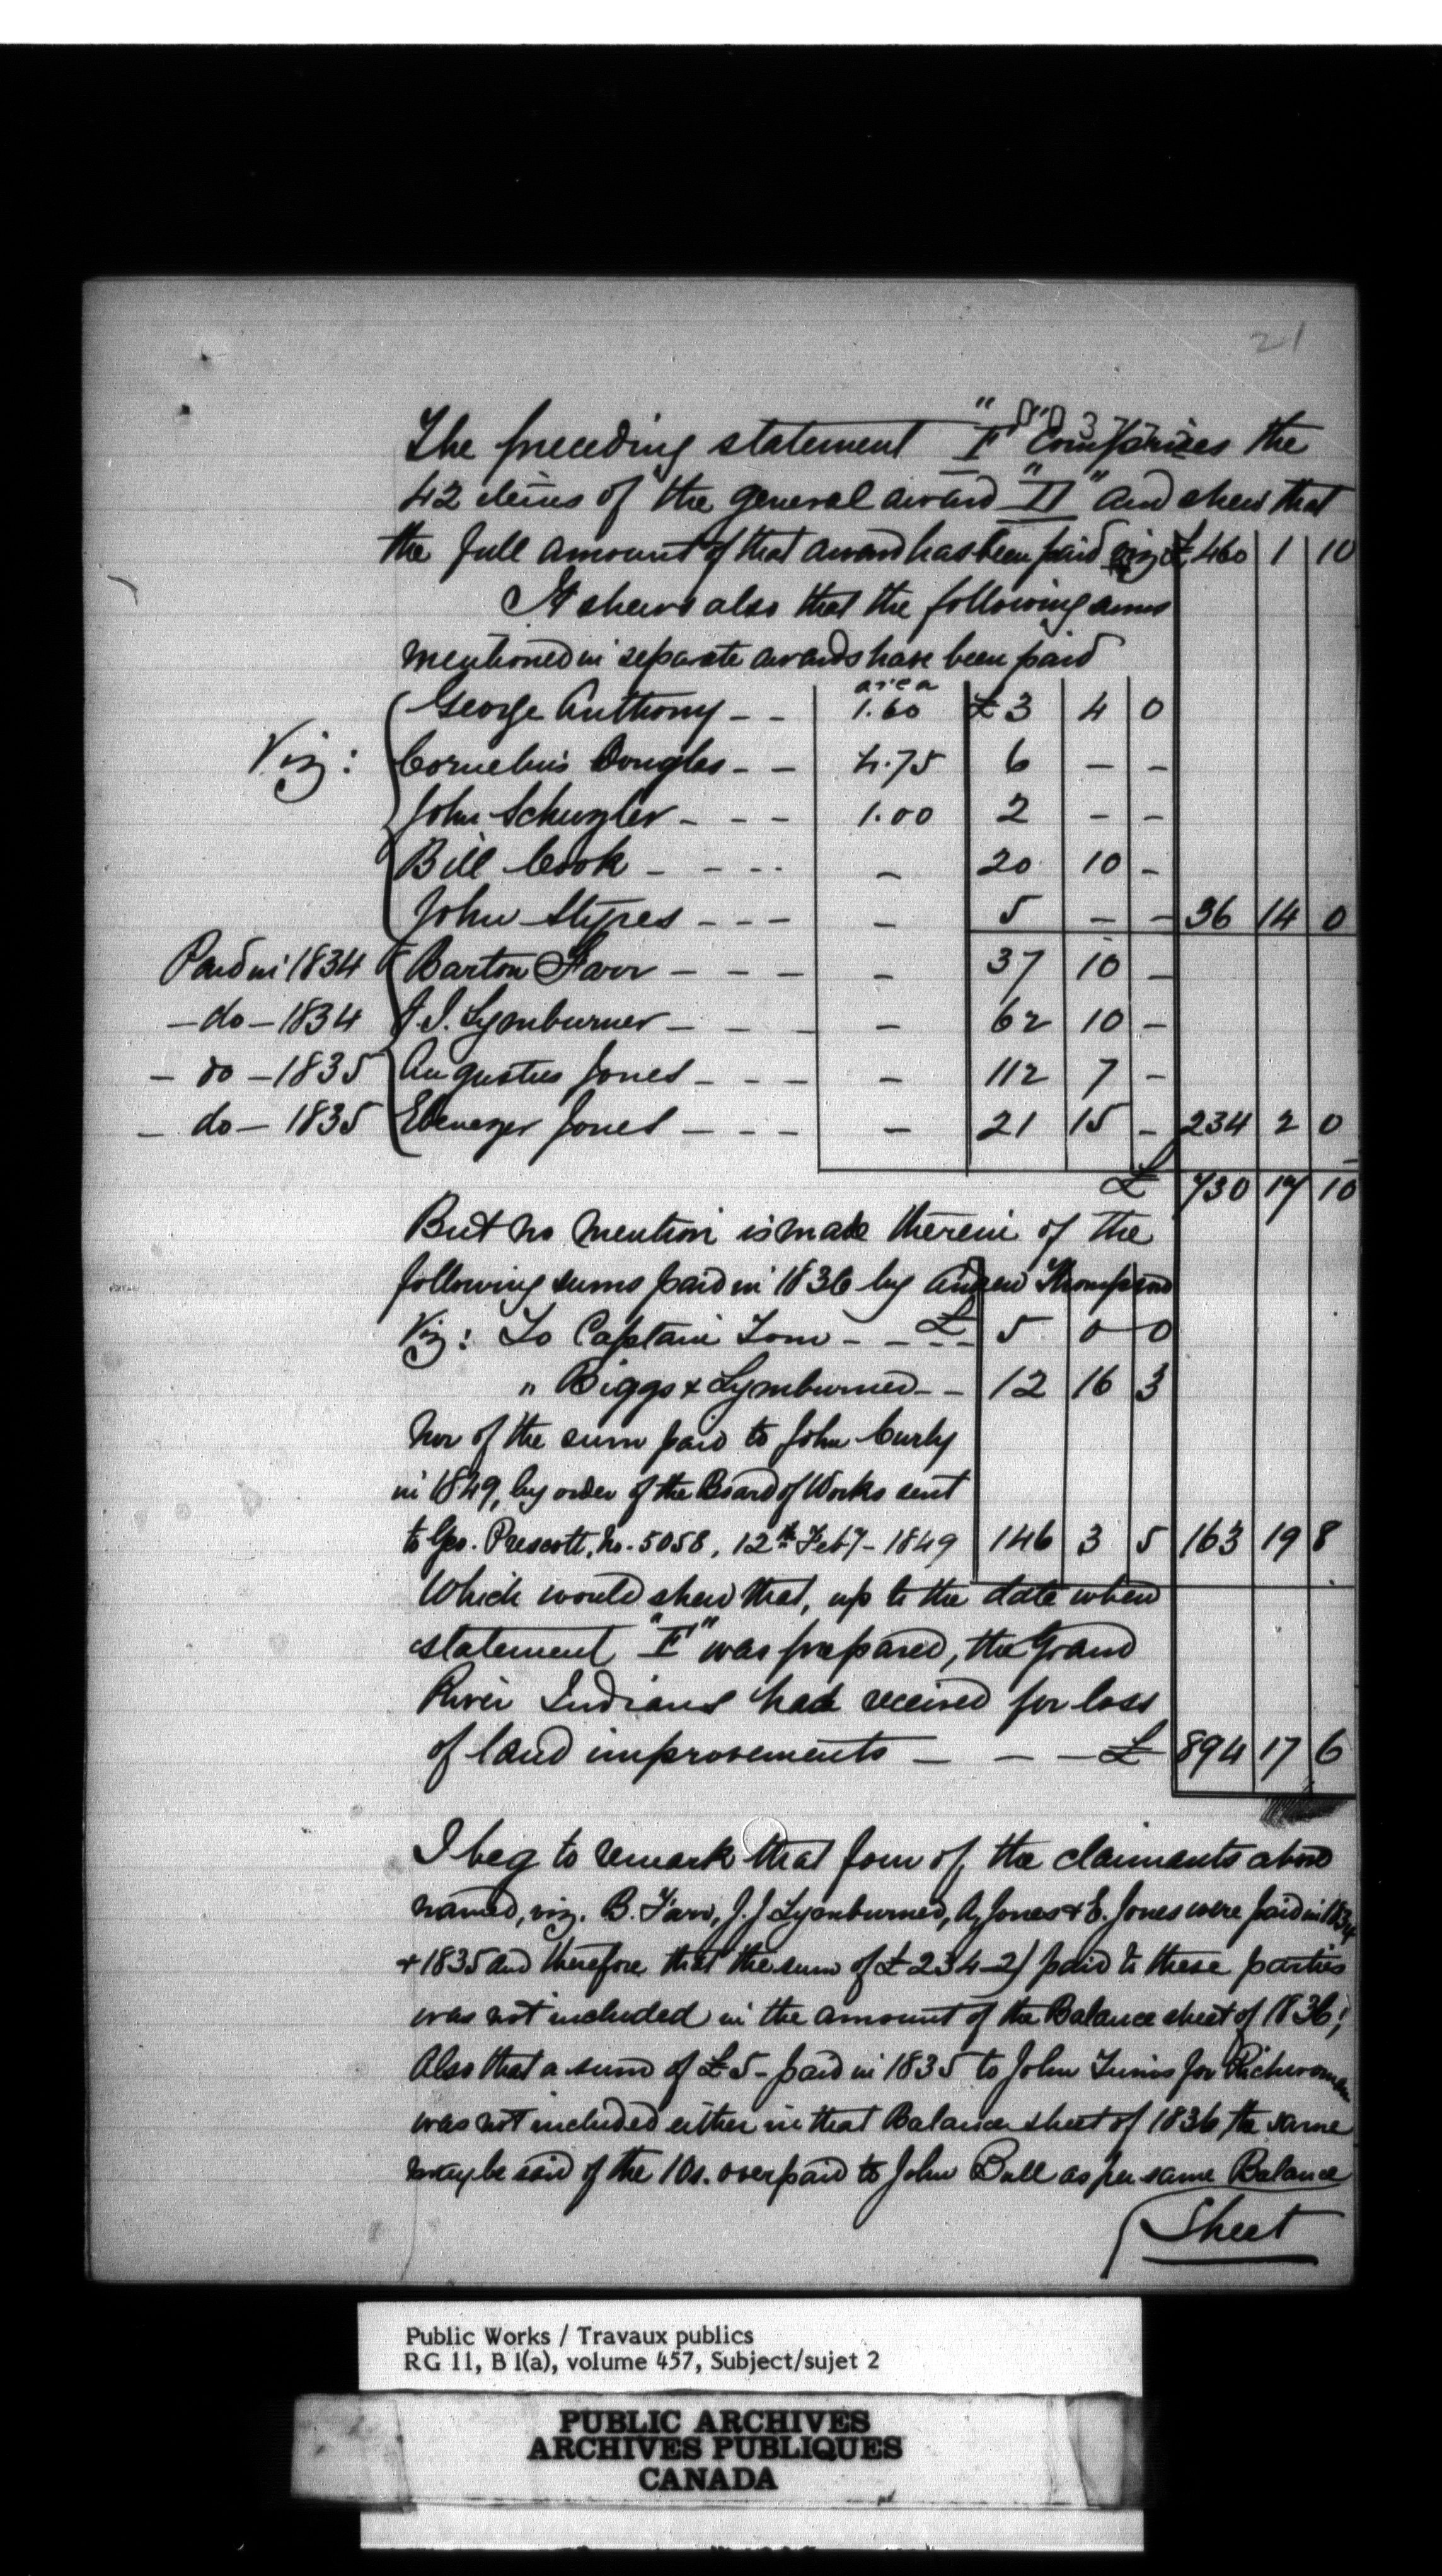 21
The preceding statement "F" comprizes the
42 items of the general award "D" and shews that
the full amount of that award has been paid viz £ 460 1 10
It shews also that the following sums
mentioned in separate awards have been paid
area
George Anthony - - 1.60 £ 3 4 0
Viz: Cornelius Douglas - - 4.75 6 - -
John Schuyler - - - 1.00 2 - -
Bill Cook - - - - - 20 10 -
John Stypes - - - - 5 - - 36 14 0
Paid in 1834 Barton Farr - - - - 37 10 -
- do - 1834 J. J. Lymburner - - - - 62 10 -
- do - 1835 Augustus Jones - - - - 112 7 -
- do - 1835 Ebenezer Jones - - - - 21 15 - 234 2 0
£ 730 17 10
But no mention is made therein of the
following sums paid in 1836 by Andrew Thompson
Viz: To Captain Tom - - £ 5 0 0
" Biggs & Lymburner - - 12 16 3
Nor of the sum paid to John Curly
in 1849, by order of the Board of Works sent
to Geo. Prescott, No. 5058, 12th Feby - 1849 146 3 5 163 19 8
Which would shew that, up to the date when
statement "F" was prepared, the Grand
River Indians had received for loss
of land improvements - - - £ 894 17 6
I beg to remark that four of the claimants above
named, viz. B. Farr, J. J Lymburner, A. Jones & E. Jones were paid in 1834
& 1835 and therefore that the sum of £ 234-2/ paid to these parties
was not included in the amount of the Balance sheet of 1836;
Also that a sum of £ 5 - paid in 1835 to John Turns for
was not included either in that Balance sheet of 1836, the same
may be said of the 10s. overpaid to John Bull as per same Balance
Sheet
Public Works / Travaux publics
RG 11, B 1(a), volume 457, Subject/sujet 2
PUBLIC ARCHIVES
ARCHIVES PUBLIQUES
CANADA